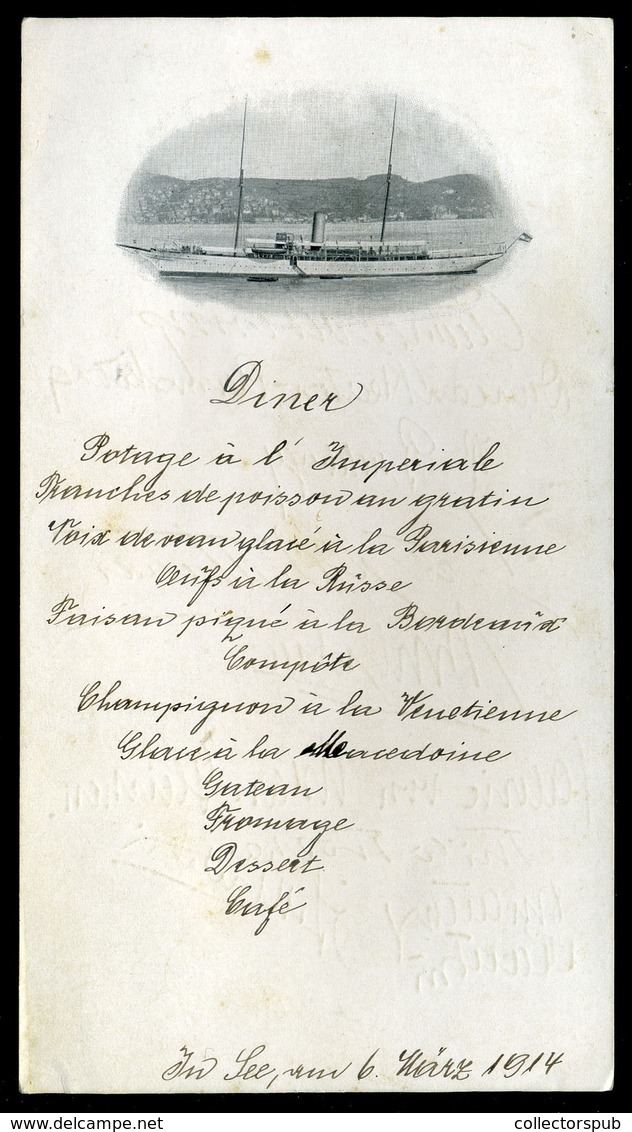 Diner
Potage à l' Imperiale
Tranches de poisson au gratin
Noix de veau glacé à la Parisienne
Œufs à la Rüsse
Faisan piqué à la Bordeaüx
Compôte
Champignon à la Venetienne
Glace à la Macedoine
Gateau
Fromage
Dessert
Café
In See, am 6. März 1914
collectorspub
delcampe.net